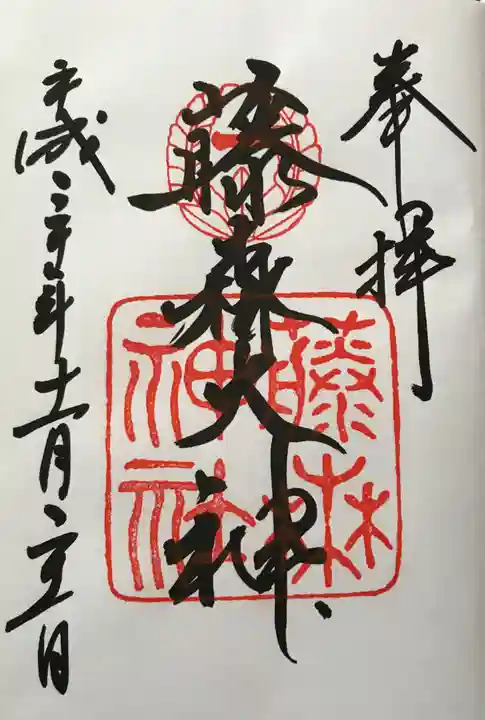 奉拝
藤森大神
藤森神社
平成三十年十一月二十日